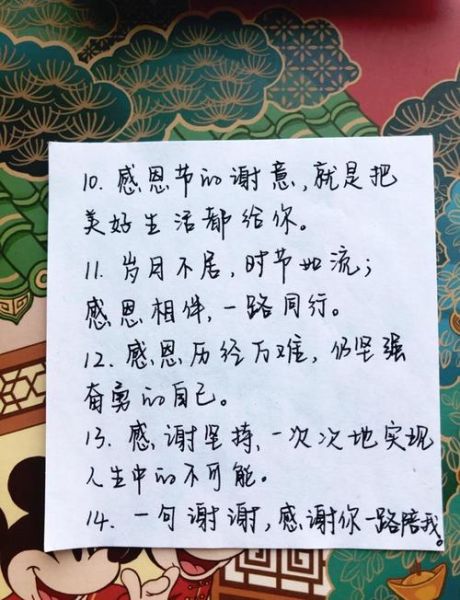 10. 感恩节的谢意，就是把
美好生活都给你。
11. 岁月不居，时节如流；
感恩相伴，一路同行。
12. 感恩历经万难，仍坚强
奋勇的自己。
13. 感谢坚持，一次次地实现
人生中的不可能。
14. 一句谢谢，感谢你一路陪我。